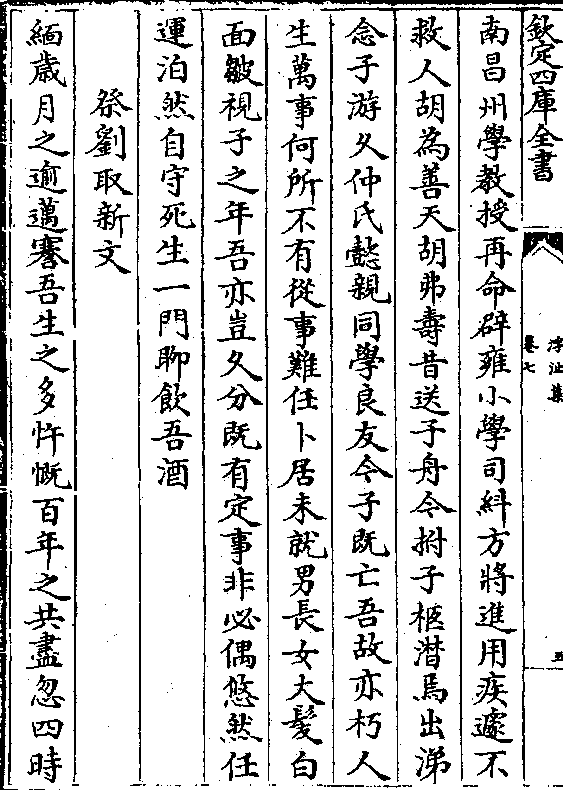 欽定四庫全書
浮沚集
卷七
五
南昌州學教授再命辟雍小學司糾方將進用疾遽不
救人胡為善天胡弗壽昔送子舟今拊子柩潸焉出涕
念子游久仲氏懿親同學良友今子既亡吾故亦朽人
生萬事何所不有從事難任卜居未就男長女大髮白
面皺視子之年吾亦豈久分既有定事非必偶悠然任
運泊然自守死生一門聊飲吾酒
祭劉取新文
緬歲月之逾邁謇吾生之多忤慨百年之共盡忽四時